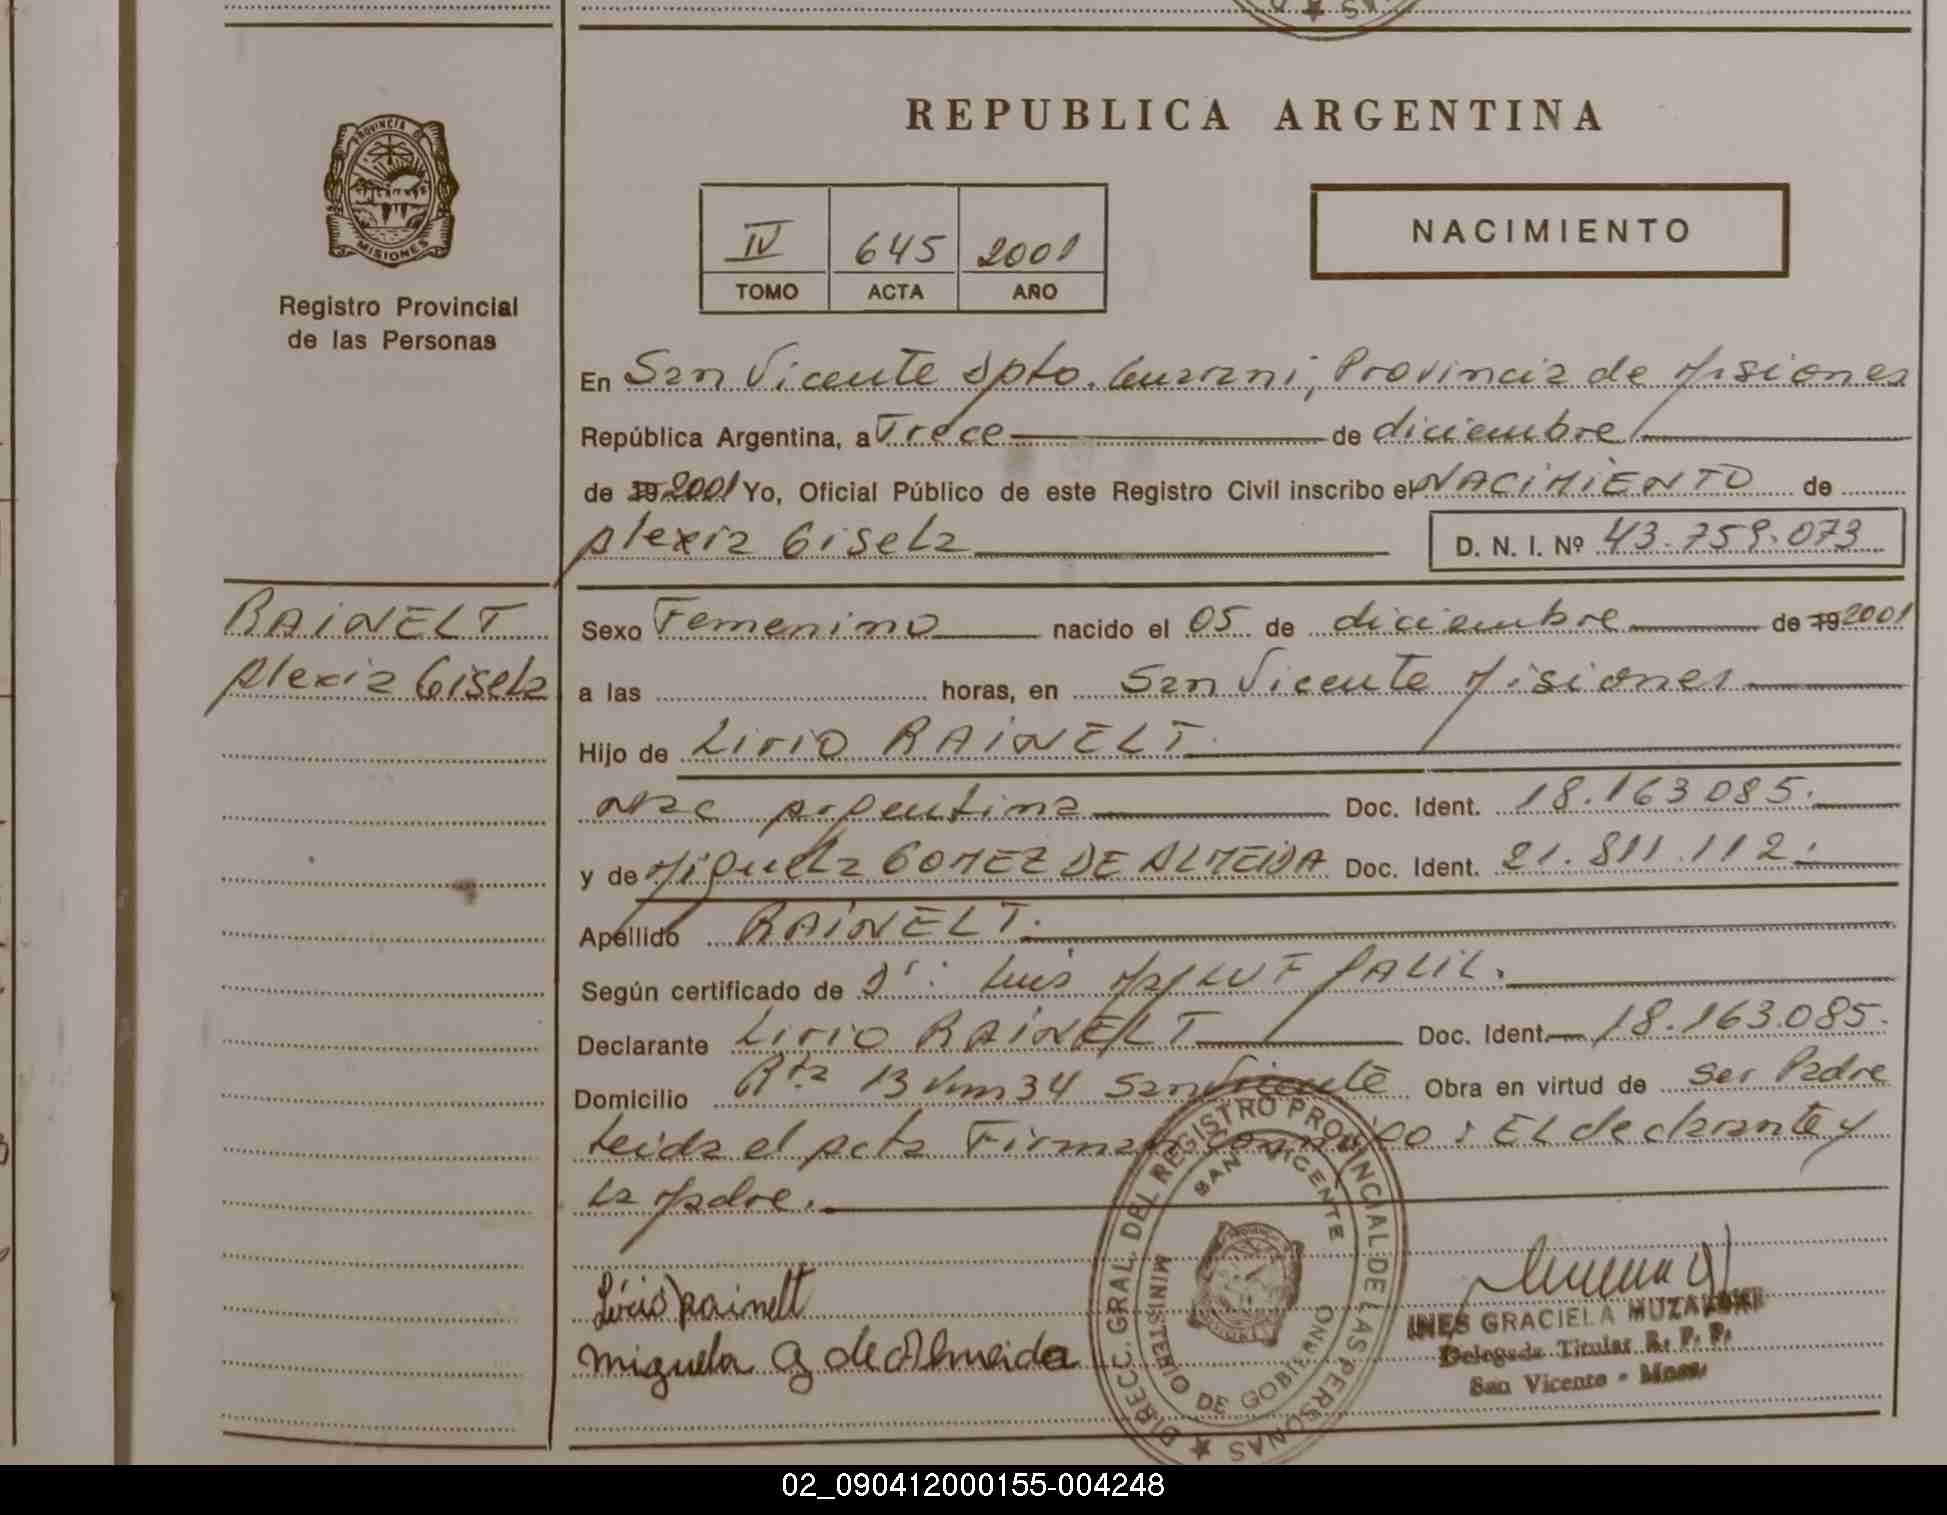 REPUBLICA ARGENTINA
PROVINCIA DE
MISIONES
Registro Provincial
de las Personas
IV 645 2001
TOMO ACTA AÑO
NACIMIENTO
En San Vicente Dpto. Guarani, Provincia de Misiones
República Argentina, a Trece de diciembre
de 19 2001 Yo, Oficial Público de este Registro Civil inscribo el NACIMIENTO de
Alexia Gisela D. N. I. Nº 43.759.073
RAINELT
Alexia Gisela
Sexo Femenino nacido el 05 de diciembre de 19 2001
a las horas, en San Vicente Misiones
Hijo de Lirio RAINELT
Nac Argentina Doc. Ident. 18.163.085.
y de Miguela GOMEZ DE ALMEIDA Doc. Ident. 21.811.112.
Apellido RAINELT.
Según certificado de Dr: Luis JALIL.
Declarante Lirio RAINELT Doc. Ident. 18.163.085.
Domicilio Rta 13 Km 34 San Vicente Obra en virtud de Ser Padre
Leida el acta Firman conmigo: El declarante y
la Madre.
Lírio Rainelt
Miguela G de Almeida
DIRECC. GRAL. DEL REGISTRO PROVINCIAL DE LAS PERSONAS
SAN VICENTE
MINISTERIO DE GOBIERNO
INES GRACIELA
Delegada Titular R. P. P.
San Vicente - Mnes
02_090412000155-004248